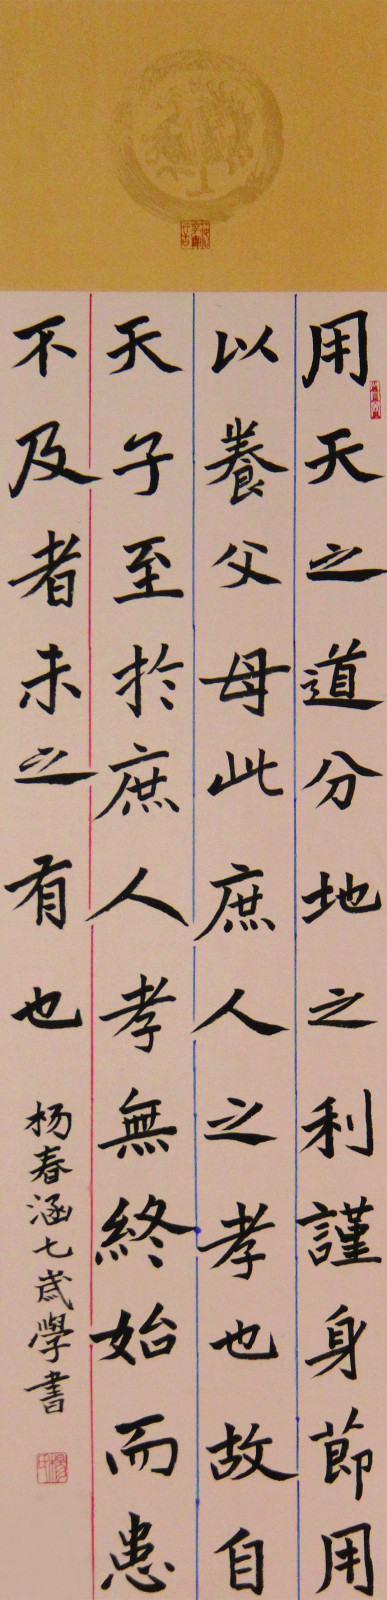 用天之道分地之利謹身節用
以養父母此庶人之孝也故自
天子至於庶人孝無終始而患
不及者未之有也
杨春涵七歲學書